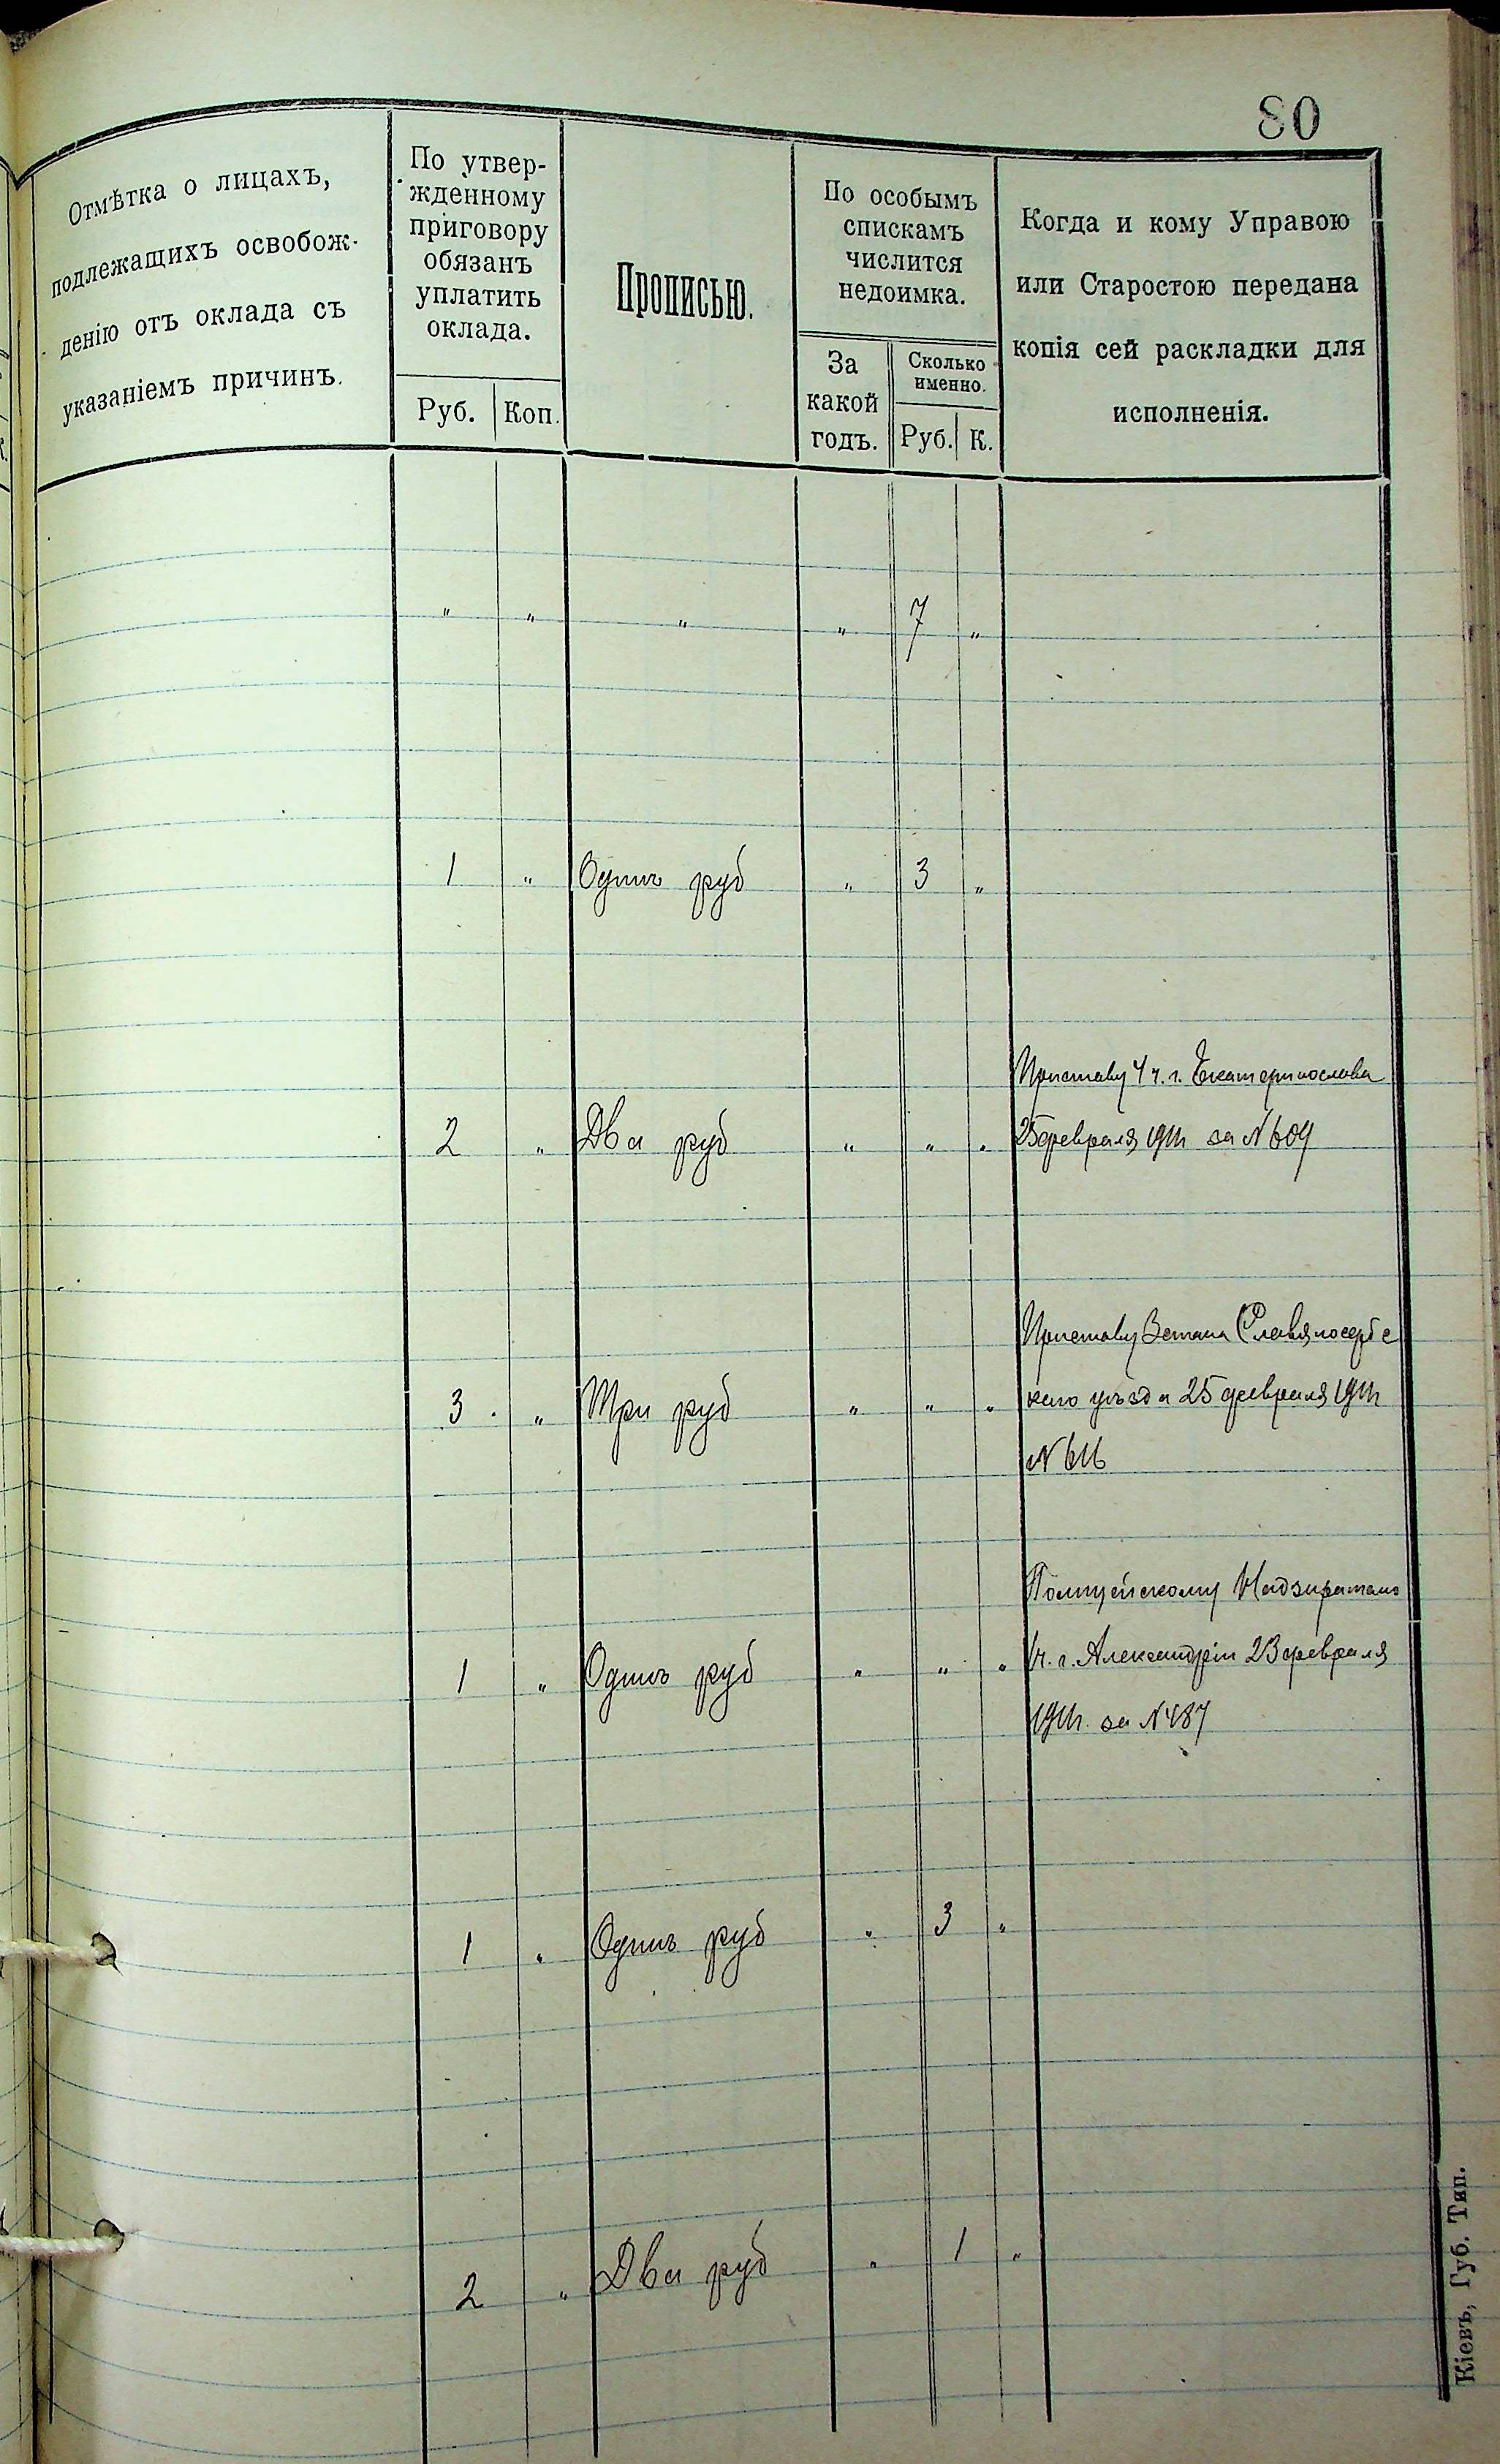 80
Отмѣтка о лицахъ,
подлежащихъ освобож-
денію отъ оклада съ
указаніемъ причинъ.
По утвер-
жденному
приговору
обязанъ
уплатить
оклада.
Руб. Коп.
Прописью.
По особымъ
спискамъ
числится
недоимка.
За
какой
годъ.
Сколько
именно.
Руб. К.
Когда и кому Управою
или Старостою передана
копія сей раскладки для
исполненія.
" " " " 7 "
1 " Одинъ руб " 3 "
Приставу 4 ч. г. Екатеринослава
2 " Два руб " " " 25 февраля 1911 за № 609
Приставу 3 стана Славяносербс
3 " Три руб " " " каго уѣзда 25 февраля 1911
№ 616
Полицейскому Надзирателю
1 " Одинъ руб " " " 1 ч. г. Александріи 23 февраля
1911 за № 487
1 " Одинъ руб " 3 "
2 " Два руб " 1 "
Кіевъ, Губ. Тип.